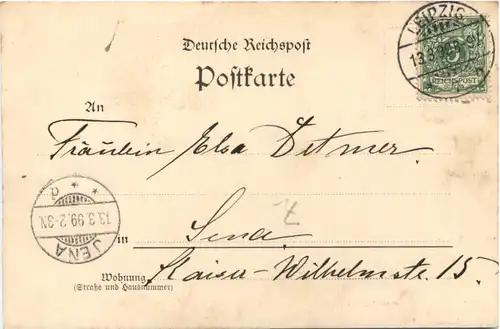 LEIPZIG
13.3.99
REICHSPOST
Deutsche Reichspost
Postkarte
An
Fräulein Elsa Detmer.
JENA
13.3.99.2-3N.
in Jena.
Wohnung Kaiser-Wilhelmstr. 15.
(Straße und Hausnummer)